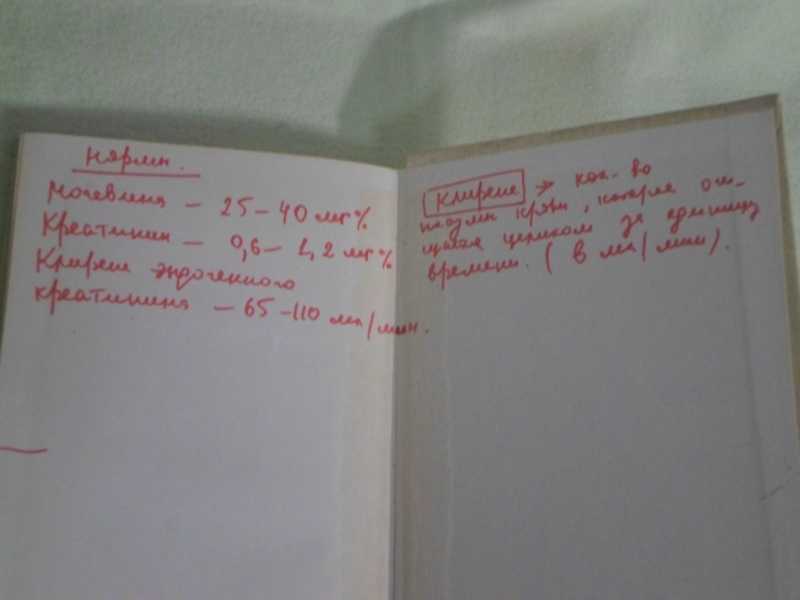 Нормы.
Мочевина – 25–40 мг%
Креатинин – 0,6–1,2 мг%
Клиренс эндогенного
креатинина – 65–110 мл/мин.
Клиренс → кол-во
плазмы крови, которая очи-
щается целиком за единицу
времени. (в мл/мин).